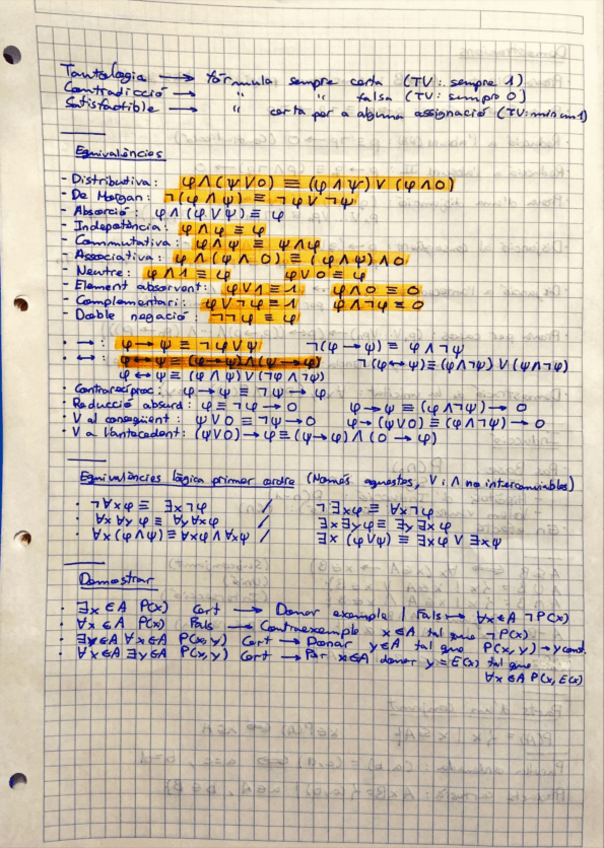 Tautologia → fórmula sempre certa (TV: sempre 1)
Contradicció → " falsa (TV: sempre 0)
Satisfactible → " certa per a alguna assignació (TV: mínim 1)
Equivalències
- Distributiva: φ∧(ψ∨θ) ≡ (φ∧ψ)∨(φ∧θ)
- De Morgan: ¬(φ∧ψ) ≡ ¬φ∨¬ψ
- Absorció: φ∧(φ∨ψ) ≡ φ
- Indepotència: φ∧φ ≡ φ
- Commutativa: φ∧ψ ≡ ψ∧φ
- Associativa: φ∧(ψ∧θ) ≡ (φ∧ψ)∧θ
- Neutre: φ∧1 ≡ φ φ∨0 ≡ φ
- Element absorvent: φ∨1 ≡ 1 φ∧0 ≡ 0
- Complementari: φ∨¬φ ≡ 1 φ∧¬φ ≡ 0
- Doble negació: ¬¬φ ≡ φ
• →: φ→ψ ≡ ¬φ∨ψ ¬(φ→ψ) ≡ φ∧¬ψ
• ↔: φ↔ψ ≡ (φ→ψ)∧(ψ→φ) ¬(φ↔ψ) ≡ (φ∧¬ψ)∨(ψ∧¬φ)
φ↔ψ ≡ (φ∧ψ)∨(¬φ∧¬ψ)
• Contrarecíproc: φ→ψ ≡ ¬ψ→¬φ
• Reducció absurd: φ ≡ ¬φ→0 φ→ψ ≡ (φ∧¬ψ)→0
• V al conseqüent: ψ∨θ ≡ ¬ψ→θ φ→(ψ∨θ) ≡ (φ∧¬ψ)→θ
• V a l'antecedent: (ψ∨θ)→φ ≡ (ψ→φ)∧(θ→φ)
Equivalències lògica primer ordre (Només aquestes, ∨ i ∧ no intercanviables)
• ¬∀xφ ≡ ∃x¬φ / ¬∃xφ ≡ ∀x¬φ
• ∀x∀yφ ≡ ∀y∀xφ / ∃x∃yφ ≡ ∃y∃xφ
• ∀x(φ∧ψ) ≡ ∀xφ∧∀xψ / ∃x(φ∨ψ) ≡ ∃xφ∨∃xψ
Demostrar
• ∃x∈A P(x) Cert → Donar exemple | Fals → ∀x∈A ¬P(x)
• ∀x∈A P(x) Fals → Contraexemple x∈A tal que ¬P(x)
• ∃y∈A ∀x∈A P(x,y) Cert → Donar y∈A tal que P(x,y) → y const.
• ∀x∈A ∃y∈A P(x,y) Cert → Per x∈A donar y=E(x) tal que
∀x∈A P(x,E(x))